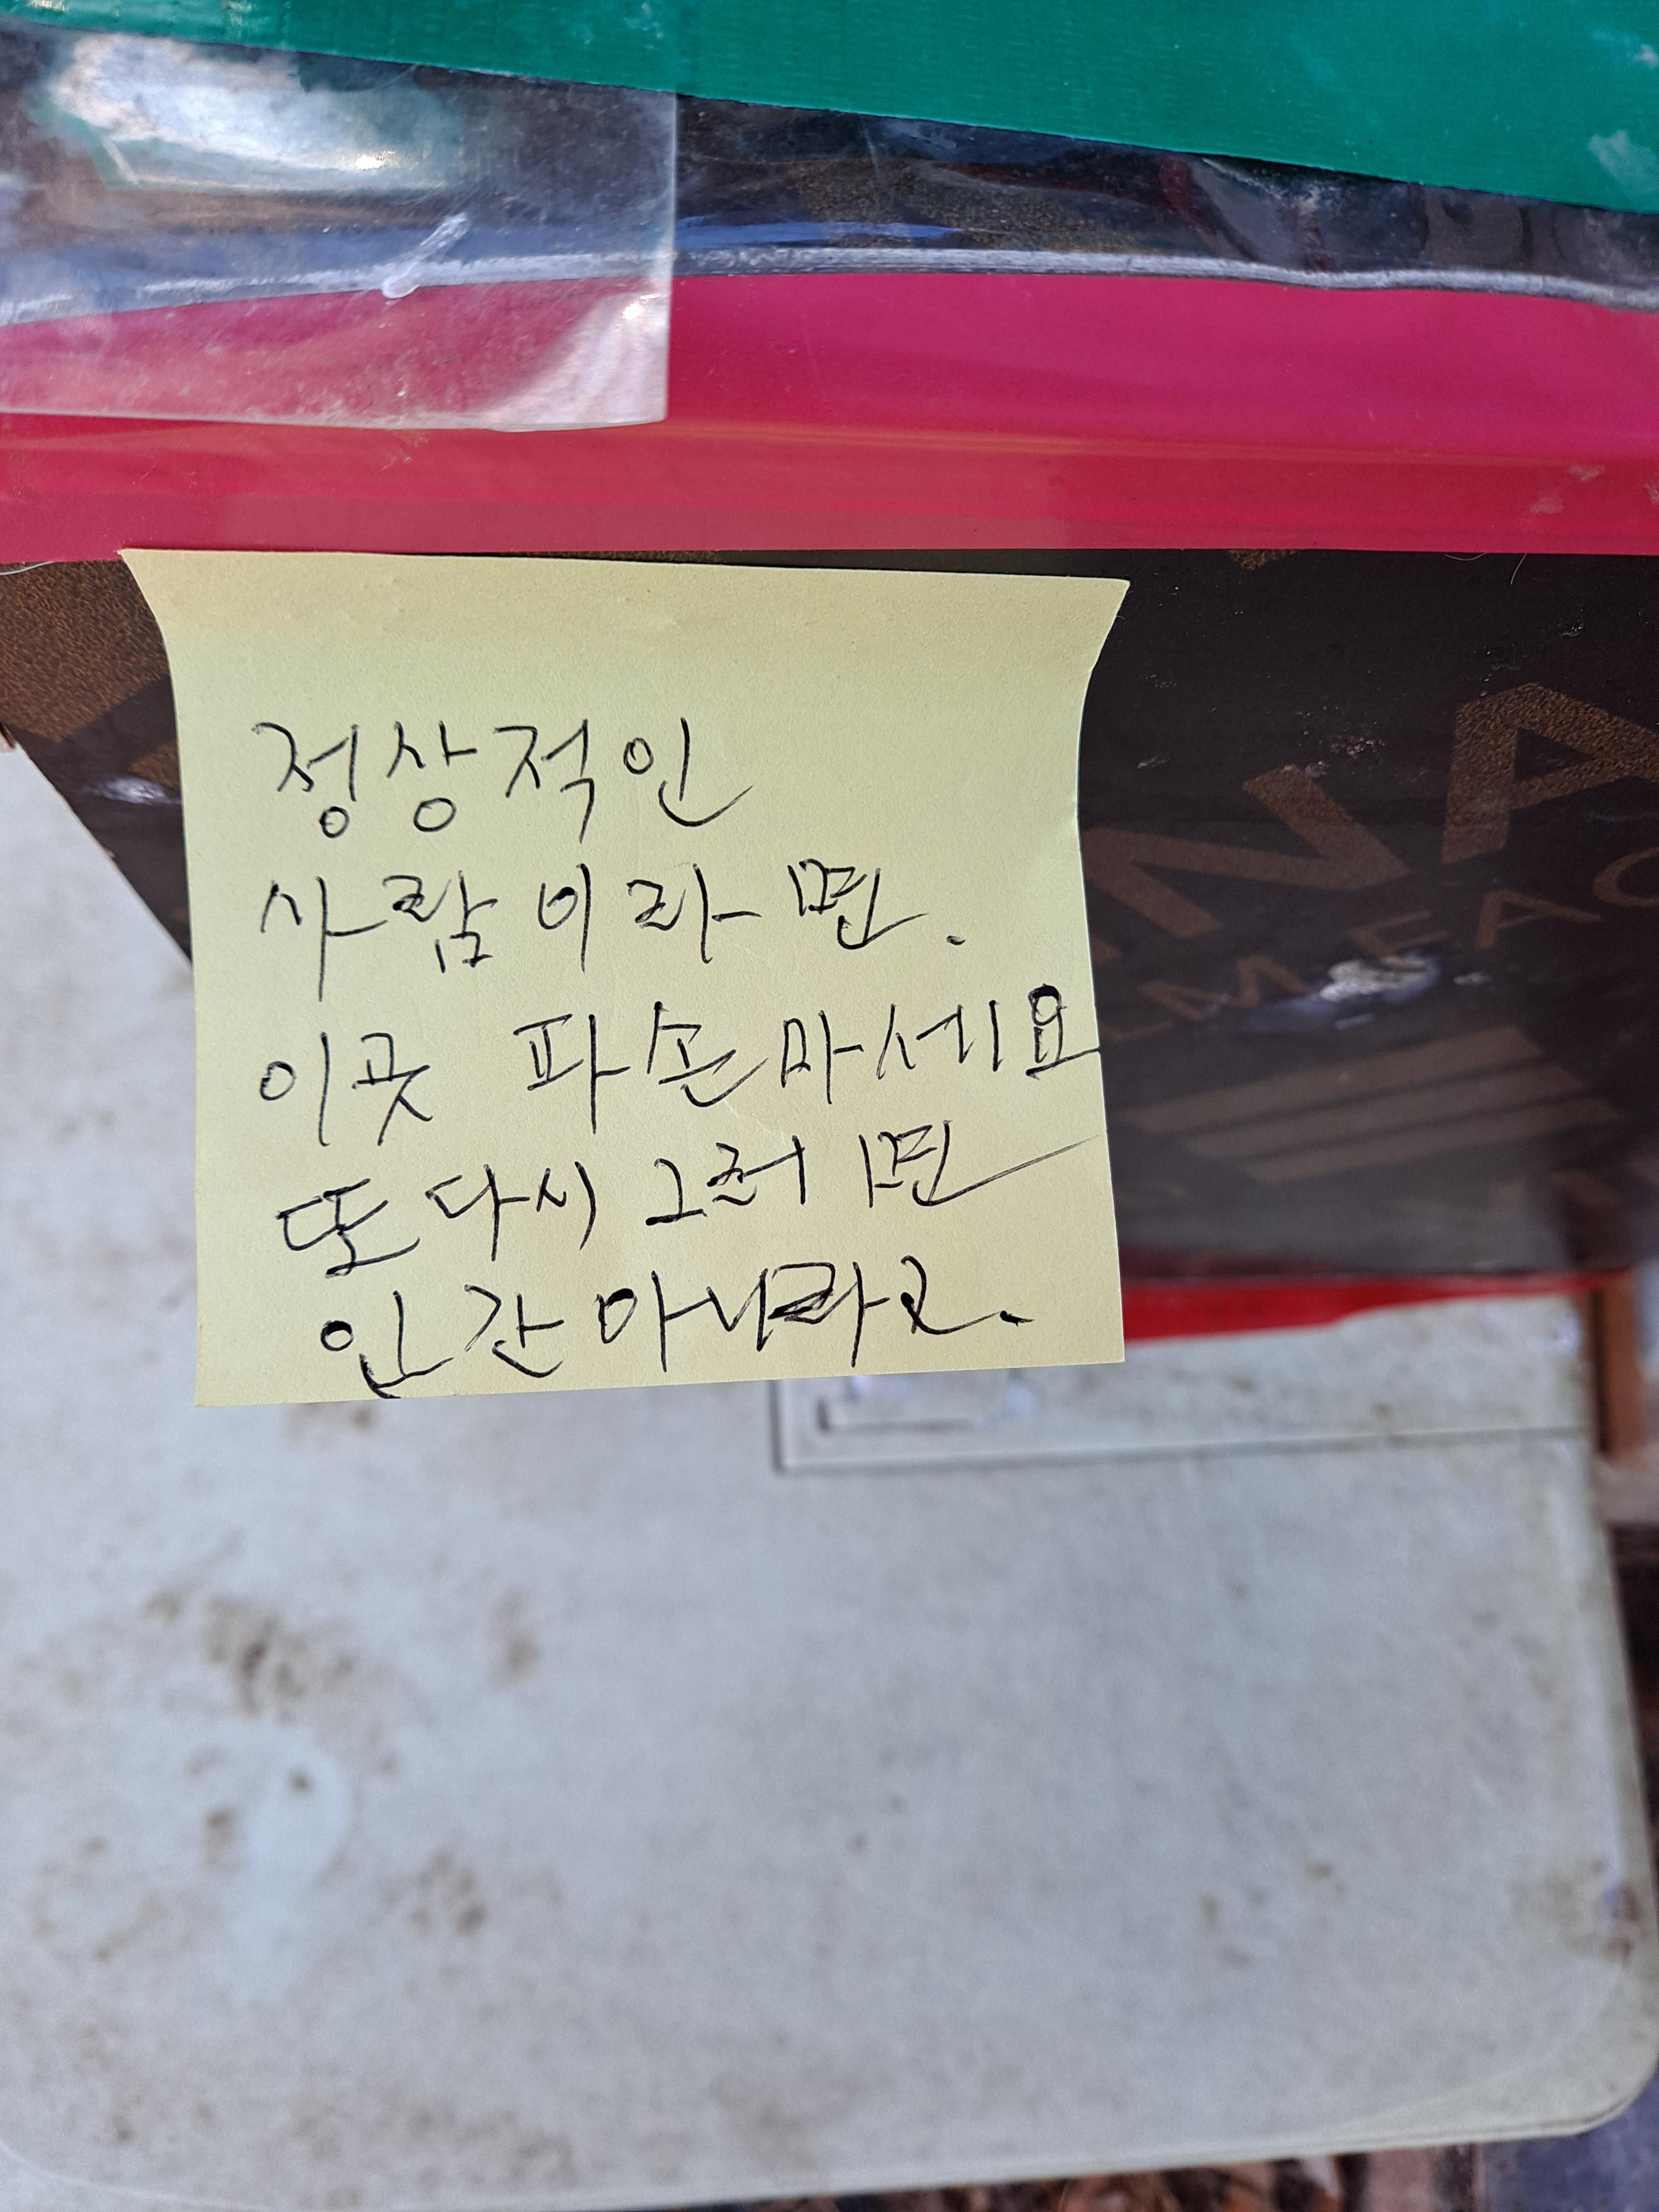 정상적인
사람이라면.
이곳 파손마세요
또다시 그러면
인간아니라고.